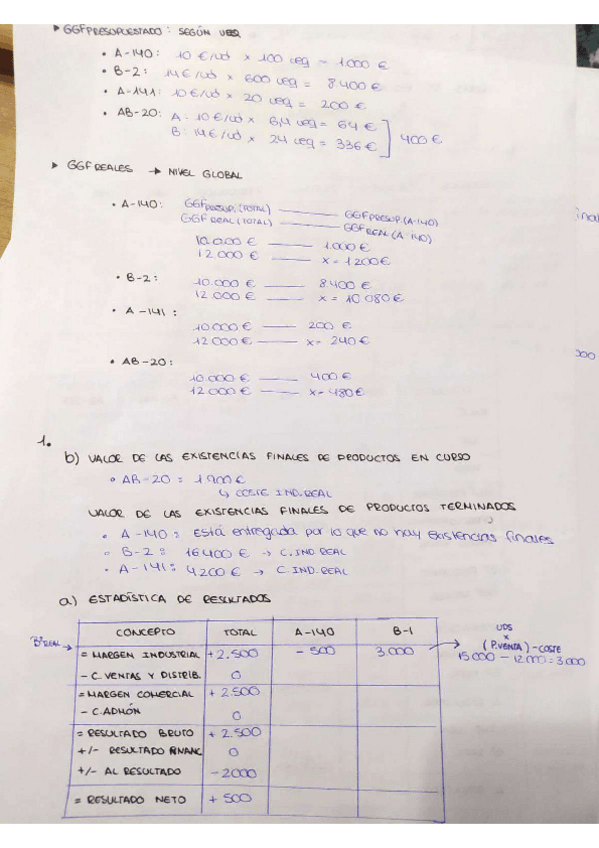 ▸ GGF PRESUPUESTADO: SEGÚN UEQ
• A-140: 10 €/ud × 100 ueq = 1000 €
• B-2: 14 €/ud × 600 ueq = 8.400 €
• A-141: 10 €/ud × 20 ueq = 200 €
• AB-20: A: 10 €/ud × 6,4 ueq = 64 €
B: 14 €/ud × 24 ueq = 336 € ] 400 €
▸ GGF REALES → NIVEL GLOBAL
• A-140: GGF PRESUP. (TOTAL) —— GGF PRESUP. (A-140)
GGF REAL (TOTAL) —— GGF REAL (A-140)
10.000 € —— 1.000 €
12.000 € —— x = 1200 €
• B-2: 10.000 € —— 8400 €
12.000 € —— x = 10080 €
• A-141:
10.000 € —— 200 €
12.000 € —— x = 240 €
• AB-20:
10.000 € —— 400 €
12.000 € —— x = 480 €
1.
b) VALOR DE LAS EXISTENCIAS FINALES DE PRODUCTOS EN CURSO
• AB-20 = 1900 €
↳ COSTE IND. REAL
VALOR DE LAS EXISTENCIAS FINALES DE PRODUCTOS TERMINADOS
• A-140: Está entregada por lo que no hay existencias finales
• B-2: 16400 € → C. IND. REAL
• A-141: 4200 € → C. IND. REAL
a) ESTADÍSTICA DE RESULTADOS
CONCEPTO TOTAL A-140 B-1
Bº REAL → = MARGEN INDUSTRIAL +2.500 -500 3.000 → UDS × (P. VENTA) - COSTE
15.000 - 12.000 = 3.000
- C. VENTAS Y DISTRIB. 0
= MARGEN COMERCIAL +2.500
- C. ADMÓN 0
= RESULTADO BRUTO +2.500
+/- RESULTADO FINANC 0
+/- AL RESULTADO -2000
= RESULTADO NETO +500